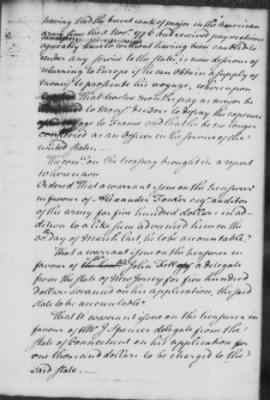 having had the brevet rank of major in the American
army from the 5 Novr. 1776 and received pay &
agreeably thereto without having been enabled to
render any service to the States, is now desirous of
returning to Europe if he can obtain a supply of
money to prosecute his voyage, whereupon
That twelve months pay as major be
to defray the expences
voyage to France and that he be no longer
considered as an Officer in the service of the
United States.
The comee. on the treasury brought in a report
whereupon
Ordered That a warrant issue on the treasurer
in favour of Alexander Fowler esqr. auditor
of the army for five hundred dollars in ad-
dition to a like sum advanced him on the
30th. day of March last, he to be accountable
That a warrant issue on the treasurer in
favour of John Fell a delegate
from the state of New Jersey for five hundred
dollars advanced on his application, the said
state to be accountable.
That a warrant issue on the treasurer in
favour of Mr J Spencer delegate from the
State of Connecticut on his application for
one thousand dollars to be charged to the
said state.